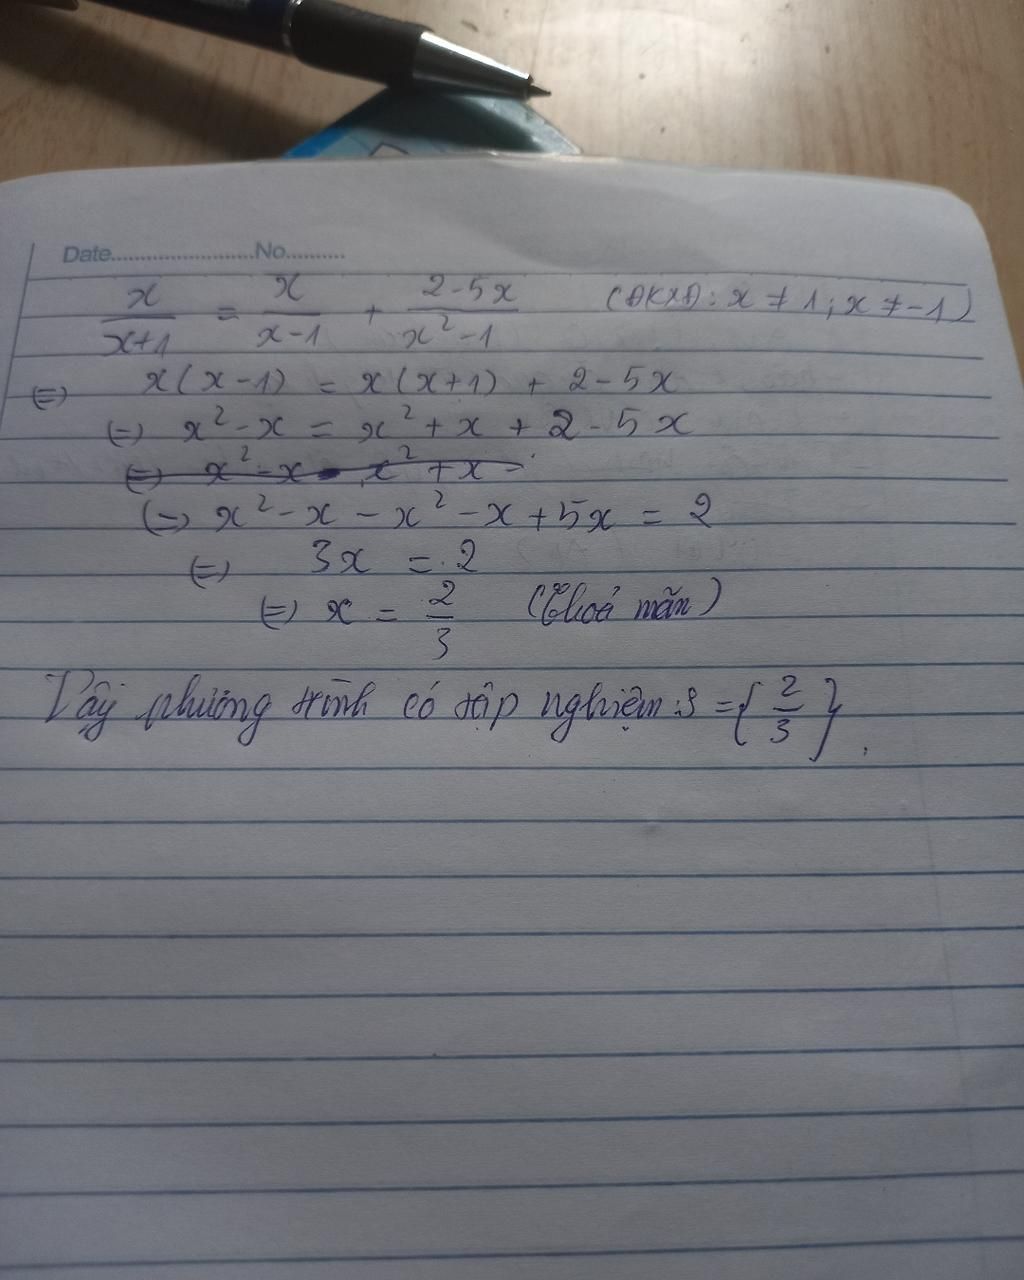 Date........................No..........
x/(x+1) = x/(x-1) + (2-5x)/(x²-1) (ĐKXĐ: x ≠ 1; x ≠ -1)
(=) x(x-1) = x(x+1) + 2-5x
(=) x²-x = x²+x + 2-5x
(=) x²-x x²+x -
(=) x²-x-x²-x+5x = 2
(=) 3x = 2
(=) x = 2/3 (Thoả mãn)
Vậy phương trình có tập nghiệm: S = {2/3}.